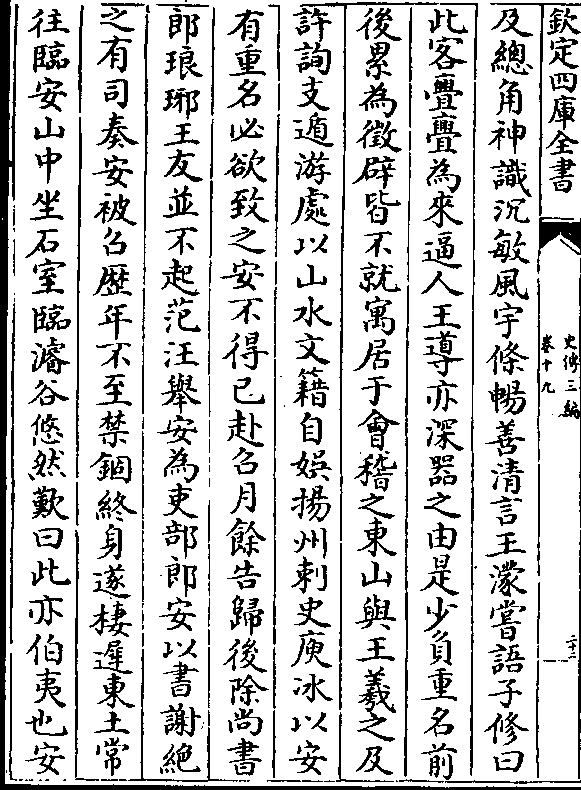 欽定四庫全書
史傳三編
卷十九
二十三
及總角神識沉敏風宇條暢善清言王濛嘗語子修曰
此客亹亹為來逼人王導亦深器之由是少負重名前
後累為徵辟皆不就寓居于會稽之東山與王羲之及
許詢支遁游處以山水文籍自娛揚州刺史庾冰以安
有重名必欲致之安不得已赴召月餘告歸後除尚書
郎琅琊王友並不起范汪舉安為吏部郎安以書謝絕
之有司奏安被召歴年不至禁錮終身遂棲遲東土常
往臨安山中坐石室臨濬谷悠然歎曰此亦伯夷也安